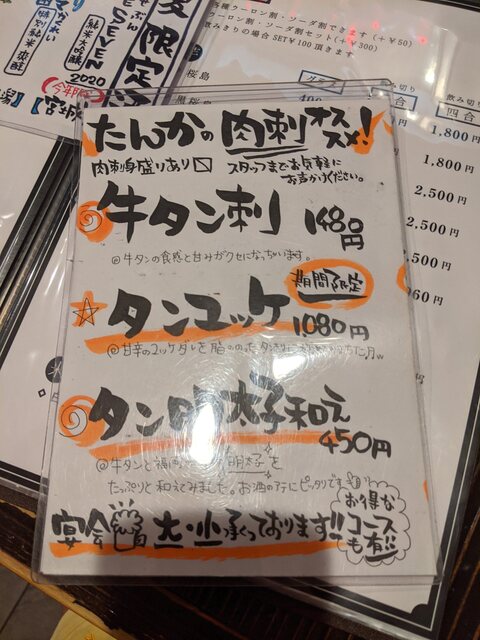 たんかの肉刺オススメ!
肉刺身盛りあり
スタッフまでお気軽に
お声かけください。
牛タン刺 1480円
◎牛タンの食感と甘みがクセになっちゃいます。
期間限定
☆タンユッケ 1,080円
◎甘辛のユッケダレと脂の
タン明太子和え 450円
◎牛タンと福岡 明太子を
たっぷりと和えてみました。お酒のアテにピッタリです
宴会 大・小承っております!!
お得な
コース
も有!!
各種ウーロン割・ソーダ割できます(+¥50)
ウーロン割・ソーダ割セット(+¥300)
飲みきりの場合SET¥100頂きます
桜島
黒桜島
グラス
四合
飲み切り
1,800円
1,800円
2,500円
2,500円
限定
SEVEN
純米大吟醸
2020
特別純米